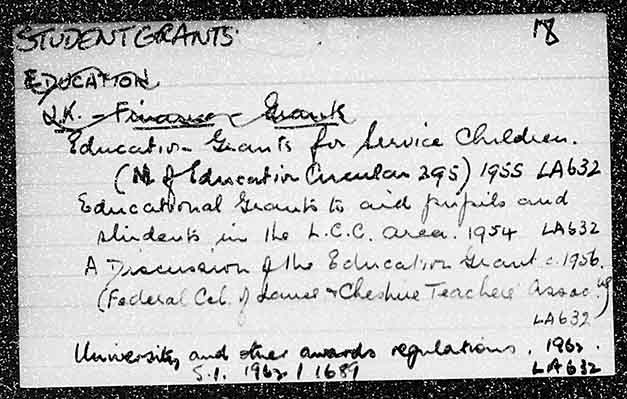 STUDENT GRANTS 18
EDUCATION
U.K. - Finance - Grants
Education Grants for Service Children.
(M. of Education Circular 295) 1955 LA632
Educational Grants to aid pupils and
students in the L.C.C. area. 1954 LA632
A Discussion of the Education Grant c.1956.
(Federal Ccl. of Lancs & Cheshire Teachers' Assoc.
LA632
University and other awards regulations, 1962.
S.I. 1962 / 1689 LA632